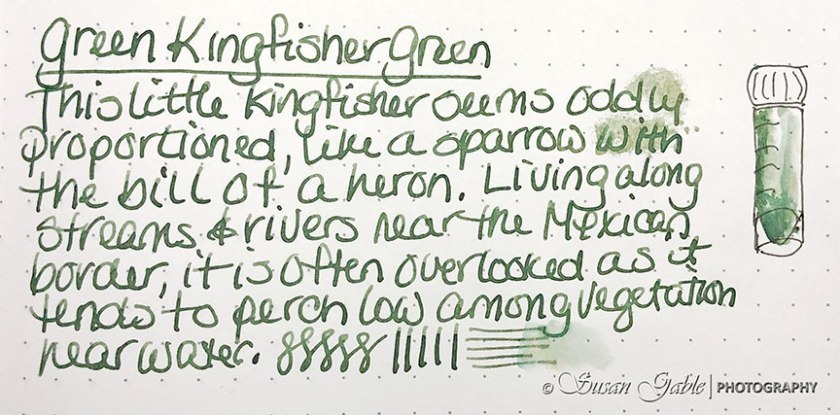 Green Kingfisher Green
This little kingfisher seems oddly
proportioned, like a sparrow with
the bill of a heron. Living along
streams & rivers near the Mexican
border, it is often overlooked as it
tends to perch low among vegetation
near water.
© Susan Gable | PHOTOGRAPHY